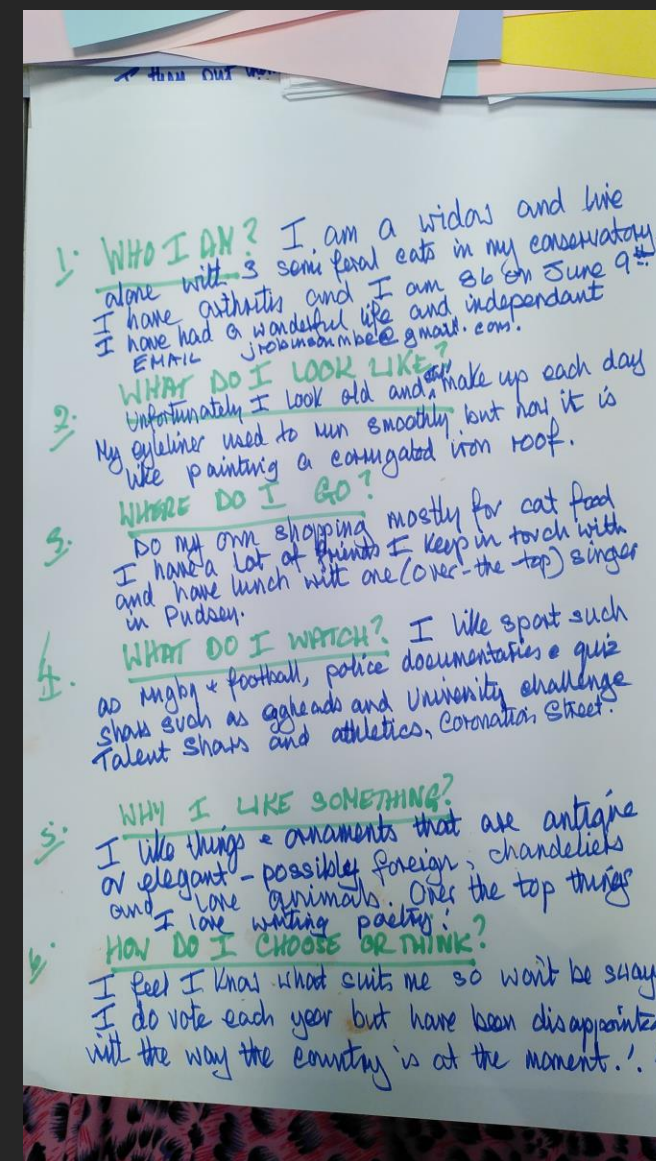 than out
1. WHO I AM? I am a widow and live
alone with 3 semi feral cats in my conservatory
I have arthritis and I am 86 on June 9th
I have had a wonderful life and independant
EMAIL @gmail.com.
2. WHAT DO I LOOK LIKE?
Unfortunately I look old and make up each day
My eyleliner used to run smoothly but now it is
like painting a corrugated iron roof.
3. WHERE DO I GO?
Do my own shopping mostly for cat food
I have a lot of friends I keep in touch with
and have lunch with one (over-the top) singer
in Pudsey.
4. WHAT DO I WATCH? I like sport such
as rugby + football, police documentaries & quiz
shows such as eggheads and University challenge
Talent shows and athletics, Coronation Street.
5. WHY I LIKE SOMETHING?
I like things & ornaments that are antique
or elegant - possibly foreign, chandeliers
and love animals. Over the top things
I love writing poetry!
6. HOW DO I CHOOSE OR THINK?
I feel I know what suits me so won't be sway
I do vote each year but have been disappointed
with the way the country is at the moment.!.